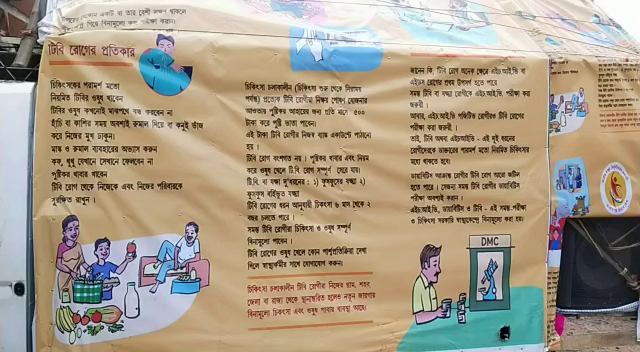 টিবি রোগের প্রতিকার
চিকিৎসকের পরামর্শ মতো
নিয়মিত টিবির ওষুধ খাবেন
টিবির ওষুধ কখনোই মাঝপথে বন্ধ করবেন না
হাঁচি বা কাশির সময় অবশ্যই রুমাল দিয়ে বা কনুই ভাঁজ
করে নিজের মুখ ঢাকুন।
মাস্ক ও রুমাল ব্যবহারের অভ্যাস করুন
কফ, থুথু যেখানে সেখানে ফেলবেন না
পুষ্টিকর খাবার খাবেন
টিবি রোগ থেকে নিজেকে এবং নিজের পরিবারকে
সুরক্ষিত রাখুন।
চিকিৎসা চলাকালীন (চিকিৎসা শুরু থেকে নিরাময়
পর্যন্ত) প্রত্যেক টিবি রোগীরা নিক্ষয় পোষণ যোজনার
আওতায় পুষ্টিকর আহারের জন্য প্রতি মাসে ৫০০
টাকা করে পুষ্টি ভাতা পাবেন।
এই টাকা টিবি রোগীরা নিজস্ব ব্যাঙ্ক একাউন্টে পাঠানো
হয়।
টিবি রোগ বংশগত নয়। পুষ্টিকর খাবার এবং নিয়ম
করে ওষুধ খেলে টি বি রোগ সম্পূর্ণ সেরে যায়।
টি.বি. বা যক্ষ্মা দু'ধরনের : ১) ফুসফুসের যক্ষ্মা ২)
ফুসফুস বহির্ভূত যক্ষ্মা
টিবি রোগের ধরন অনুযায়ী চিকিৎসা ৬ মাস থেকে ২
বছর চলতে পারে।
সমস্ত টিবি রোগীরা চিকিৎসা ও ওষুধ সম্পূর্ণ
বিনামূল্যে পাবেন।
টিবি রোগের ওষুধ খেলে কোন পার্শ্বপ্রতিক্রিয়া দেখা
দিলে স্বাস্থ্যকর্মীর সাথে যোগাযোগ করুন।
চিকিৎসা চলাকালীন টিবি রোগীরা নিজের গ্রাম, শহর
জেলা বা রাজ্য থেকে স্থানান্তরিত হলেও নতুন জায়গায়
বিনামূল্যে চিকিৎসা এবং ওষুধ পাবার ব্যবস্থা আছে।
জানেন কি, টিবি রোগ অনেক ক্ষেত্রে এইচ.আই.ভি বা
এইডস রোগের প্রথম উপসর্গ হতে পারে
সমস্ত টিবি বা যক্ষ্মা রোগীকে এইচ.আই.ভি. পরীক্ষা করা
জরুরী।
আবার, এইচ.আই.ভি পজিটিভ রোগীকেও টিবি রোগের
পরীক্ষা করা জরুরী।
তাই, টিবি অথবা এইচ.আই.ভি - এই দুই ধরনের
রোগীদেরকে ডাক্তারের পরামর্শ মতো নিয়মিত চিকিৎসার
মধ্যে থাকতে হবে।
ডায়াবিটিস আক্রান্ত রোগীর টিবি রোগ আরো জটিল
হতে পারে। সেজন্য সমস্ত টিবি রোগীর ডায়াবিটিস
পরীক্ষা অবশ্যই করান।
এইচ.আই.ভি, ডায়াবিটিস ও টিবি - এই সমস্ত পরীক্ষা
ও চিকিৎসা সরকারি স্বাস্থ্যকেন্দ্রে বিনামূল্যে করা হয়।
DMC